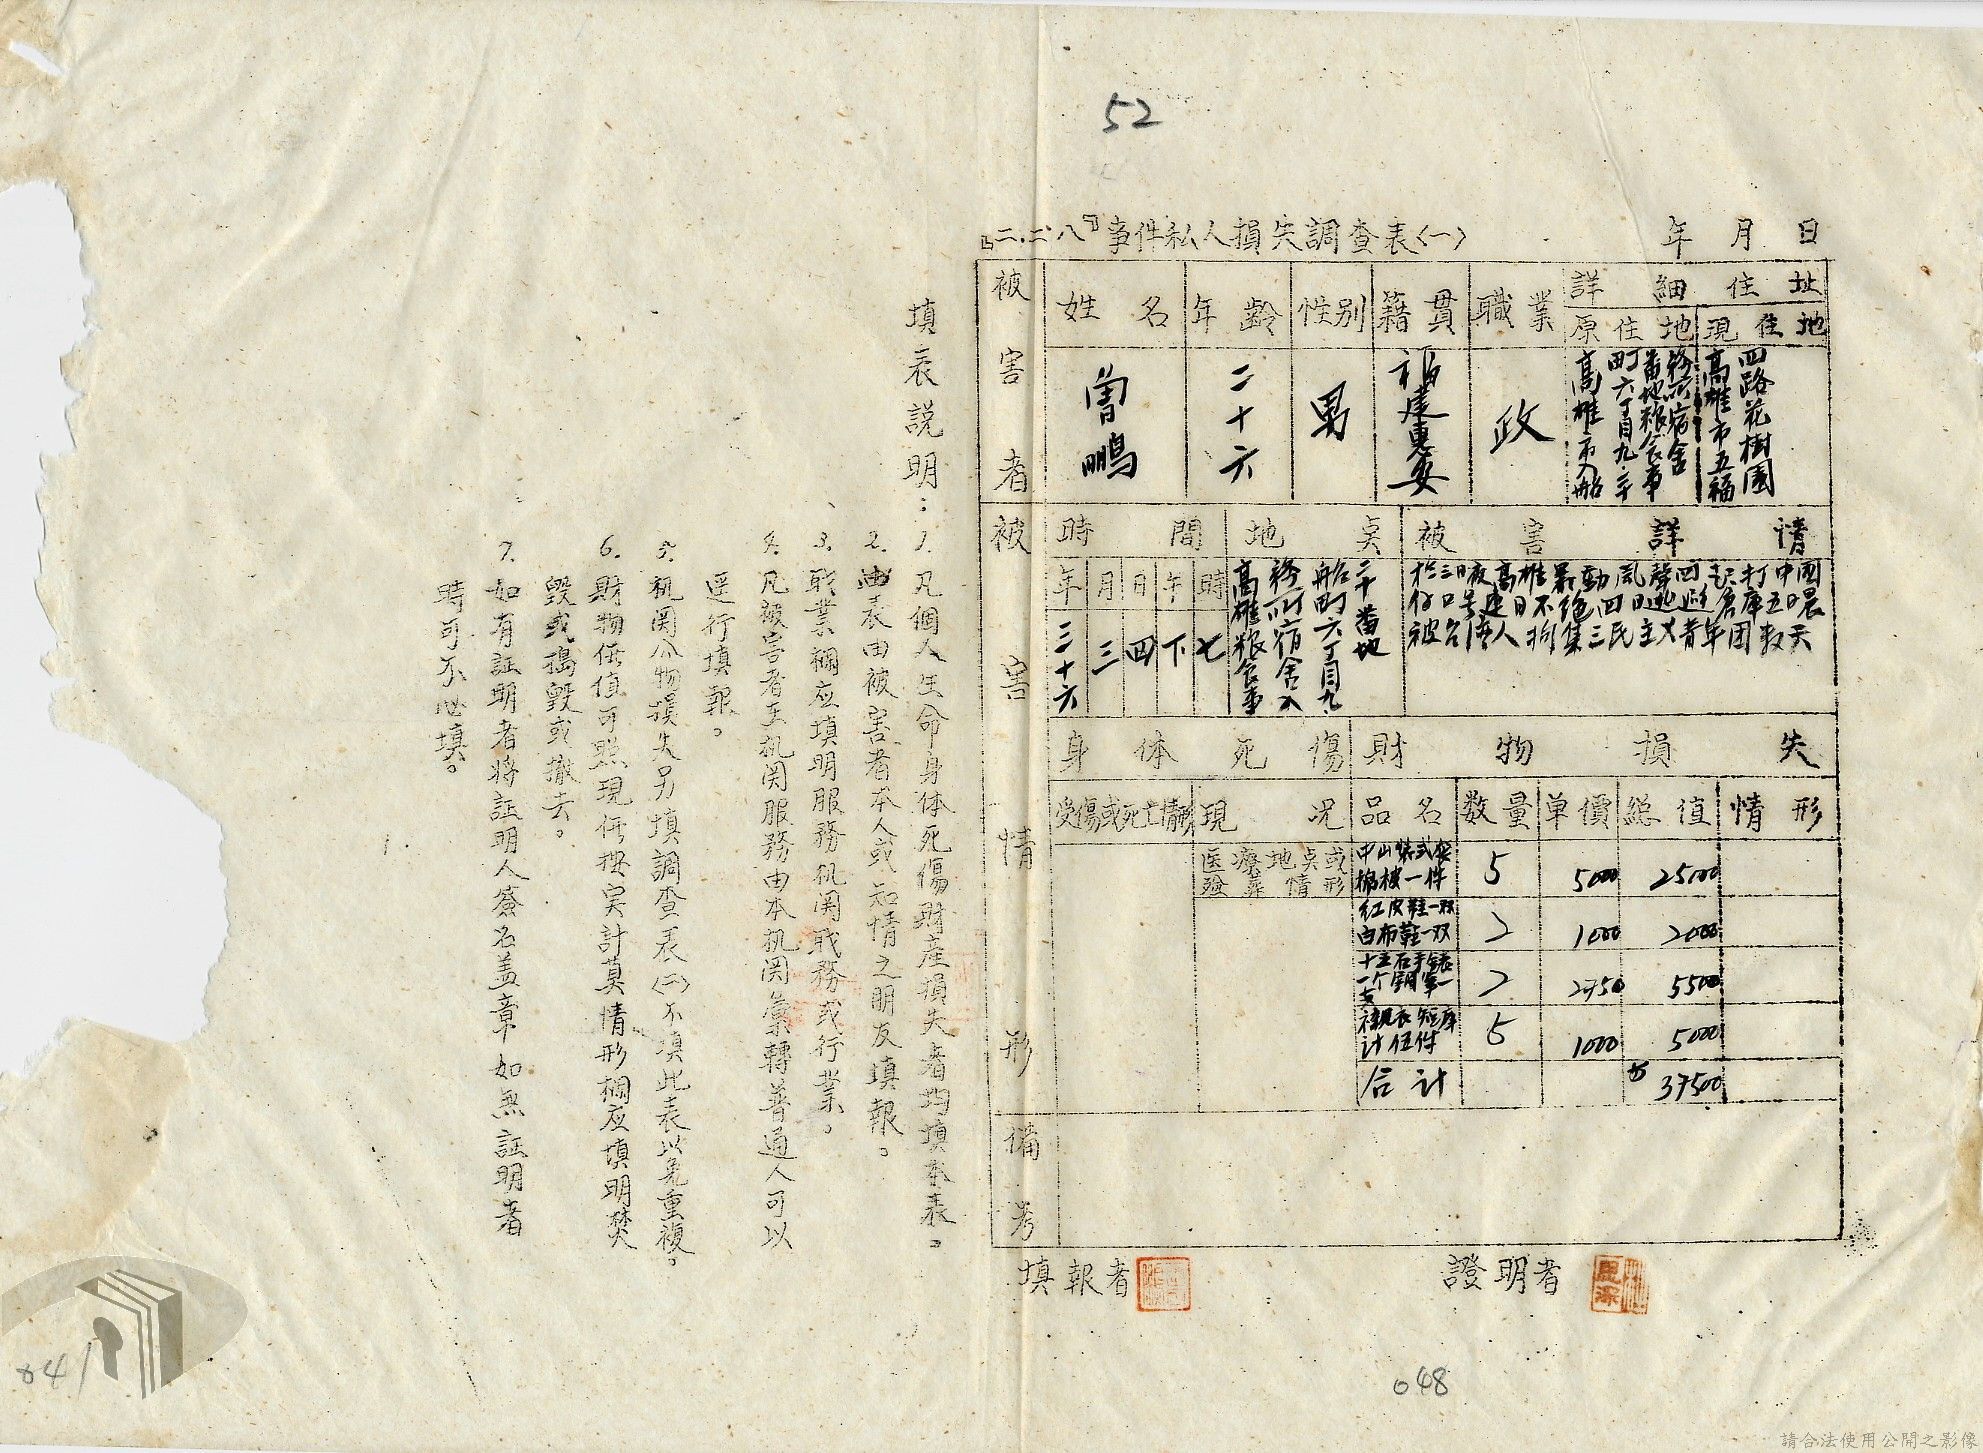 52
『二.二.八』事件私人損失調查表〈一〉
年 月 日
被害者
姓名
年齡
性別
籍貫
職業
詳細住址
原住地
現住地
曾鵬
二十六
男
福建惠安
政
高雄市入船
町六丁目九二十
番地粮食事
務所宿舍
高雄市五福
四路花樹園
被害情形
時間
地点
被害詳情
年
月
日
午
時
三十六
三
四
下
七
高雄粮食事
務所宿舍入
船町六丁目九
二十番地
於三日夜高雄暴動風聲四起打中國
仔口号連日不絕四日逃避倉庫五日晨
被台湾人拘集三民主义青年团数天
身体死傷
財物損失
受傷或死亡情形
現況
品名
数量
单價
総值
情形
医療地点或
發葬情形
中山裝弍套
棉被一件
5
5000
25000
红皮鞋一双
白布鞋一双
2
1000
2000
十五石手錶
一个鋼筆一
支
2
2750
5500
襯衣短庫
计伍件
5
1000
5000
合计
37500
備考
填報者
證明者
填表說明：
1. 凡個人生命身体死傷財產損失者均填本表。
2. 此表由被害者本人或知情之朋友填報。
3. 職業欄应填明服務机関职務或行業。
4. 凡被害者在机関服務由本机関彙轉普通人可以
逕行填報。
5. 机関公物損失另填調查表〈二〉不填此表以免重複。
6. 財物価值可照現価按実計算情形欄应填明焚
毀或搗毀或撤去。
7. 如有証明者將証明人簽名盖章如無証明者
時可不必填。
041
048
請合法使用公開之影像